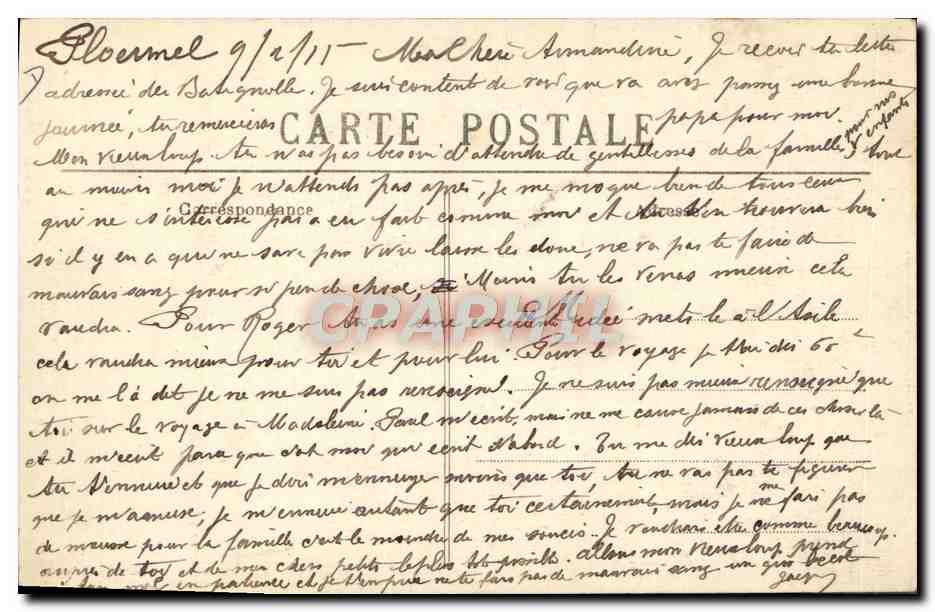 Ploermel 9/2/15 Ma Chère Armandine, Je recois ta lettre
adressée des Batignolle. Je suis content de voir que va avez passez une bonne
journée, tu remercieras papa pour moi.
CARTE POSTALE
pour nos enfants
Mon vieux loup. tu n'as pas besoin d'attendre de gentillesses de la famille, tout
au moins moi je n'attends pas après, je me moque bien de tous ceux
Correspondance Adresse
qui ne s'intéresse pas a eu fait comme moi et tu t'en trouvera bien
si il y en a que ne save pas vivre laisse les donc, ne va pas te faire de
mauvais sang pour si peu de chose, Moins tu les verras mieux cela
vaudra. Pour Roger tu as une excellente idée mets le à l'Asile
cela vaudra mieux pour toi et pour lui. Pour le voyage je t'ai dis 60
CPAPHIL
on me l'a dit je ne me suis pas renseigné. Je ne suis pas mieux renseigné que
toi sur le voyage a Madeleine. Paul m'ecrit, mais ne me cause jamais de ces choses là
et il m'ecrit parce que c'est moi qui ecrit d'abord. Tu me dis vieux loup que
tu t'ennuie et que je dois m'ennuyer moins que toi, tu ne vas pas te figurer
que je m'amuse, je m'ennuie autant que toi certainement mais je me fais pas
de mousse pour la famille c'est le moindre de mes soucis. Je voudrais etre comme beaucoup
auprès de toi et de mes chers petits le plus tot possible. Allons mon vieux loup prend
en patience et je t'en prie ne te fais pas de mauvais sang un gros bécot